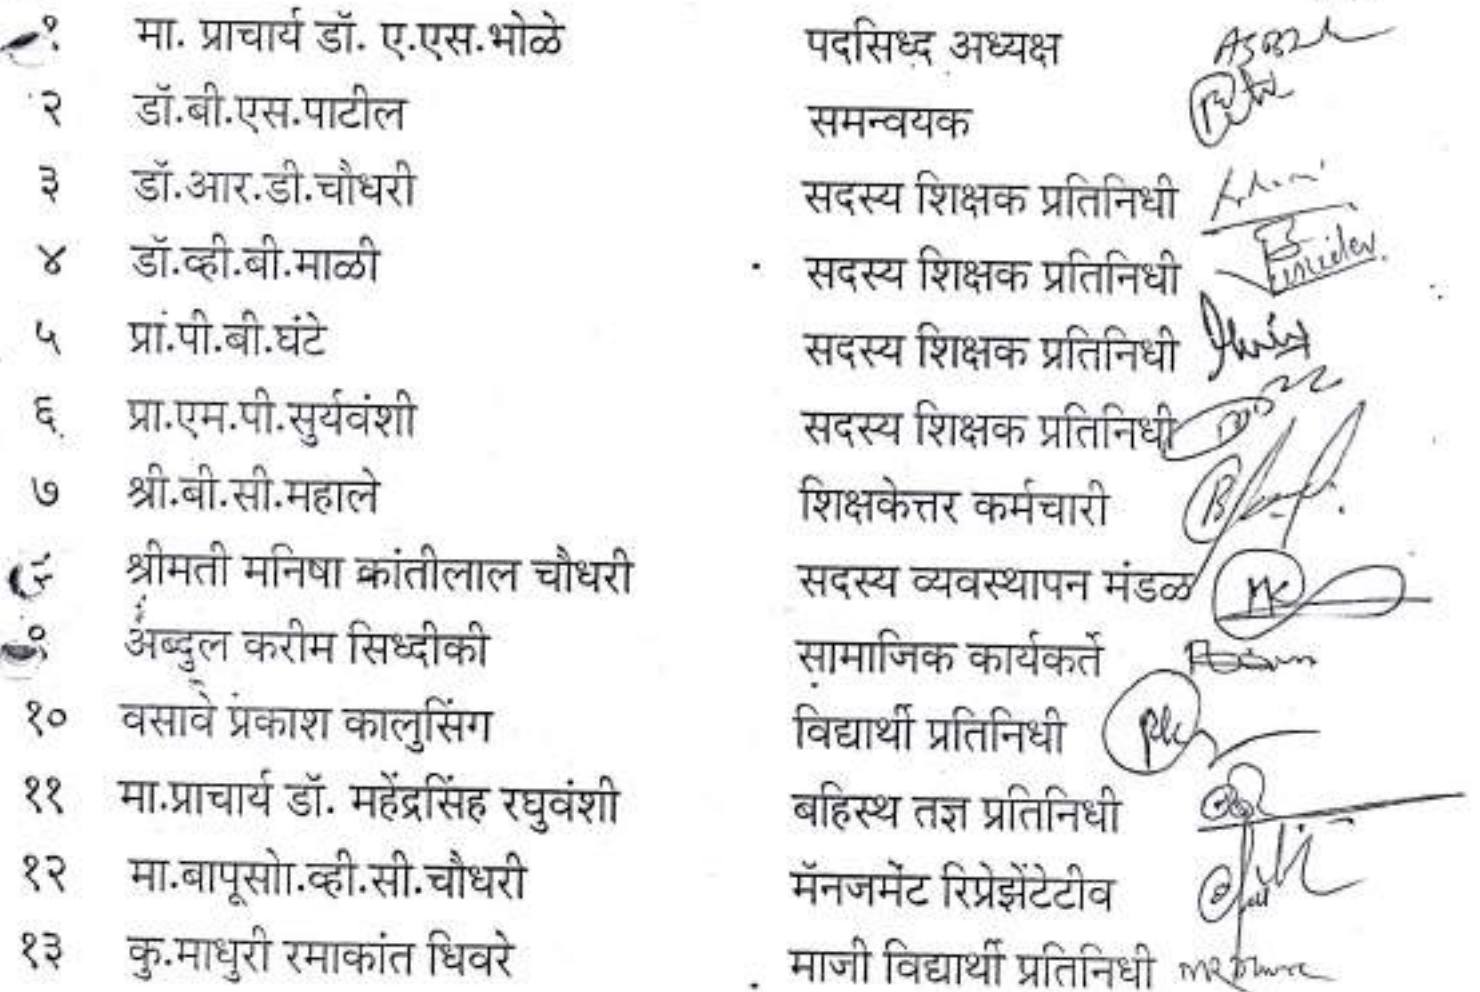 १ मा. प्राचार्य डॉ. ए.एस.भोळे पदसिध्द अध्यक्ष
२ डॉ.बी.एस.पाटील समन्वयक
३ डॉ.आर.डी.चौधरी सदस्य शिक्षक प्रतिनिधी
४ डॉ.व्ही.बी.माळी सदस्य शिक्षक प्रतिनिधी
५ प्रा.पी.बी.घंटे सदस्य शिक्षक प्रतिनिधी
६ प्रा.एम.पी.सुर्यवंशी सदस्य शिक्षक प्रतिनिधी
७ श्री.बी.सी.महाले शिक्षकेत्तर कर्मचारी
श्रीमती मनिषा कांतीलाल चौधरी सदस्य व्यवस्थापन मंडळ
अब्दुल करीम सिध्दीकी सामाजिक कार्यकर्ते
१० वसावे प्रकाश कालुसिंग विद्यार्थी प्रतिनिधी
११ मा.प्राचार्य डॉ. महेंद्रसिंह रघुवंशी बहिस्थ तज्ञ प्रतिनिधी
१२ मा.बापूसाो.व्ही.सी.चौधरी मॅनजमेंट रिप्रेझेंटेटीव
१३ कु.माधुरी रमाकांत धिवरे माजी विद्यार्थी प्रतिनिधी